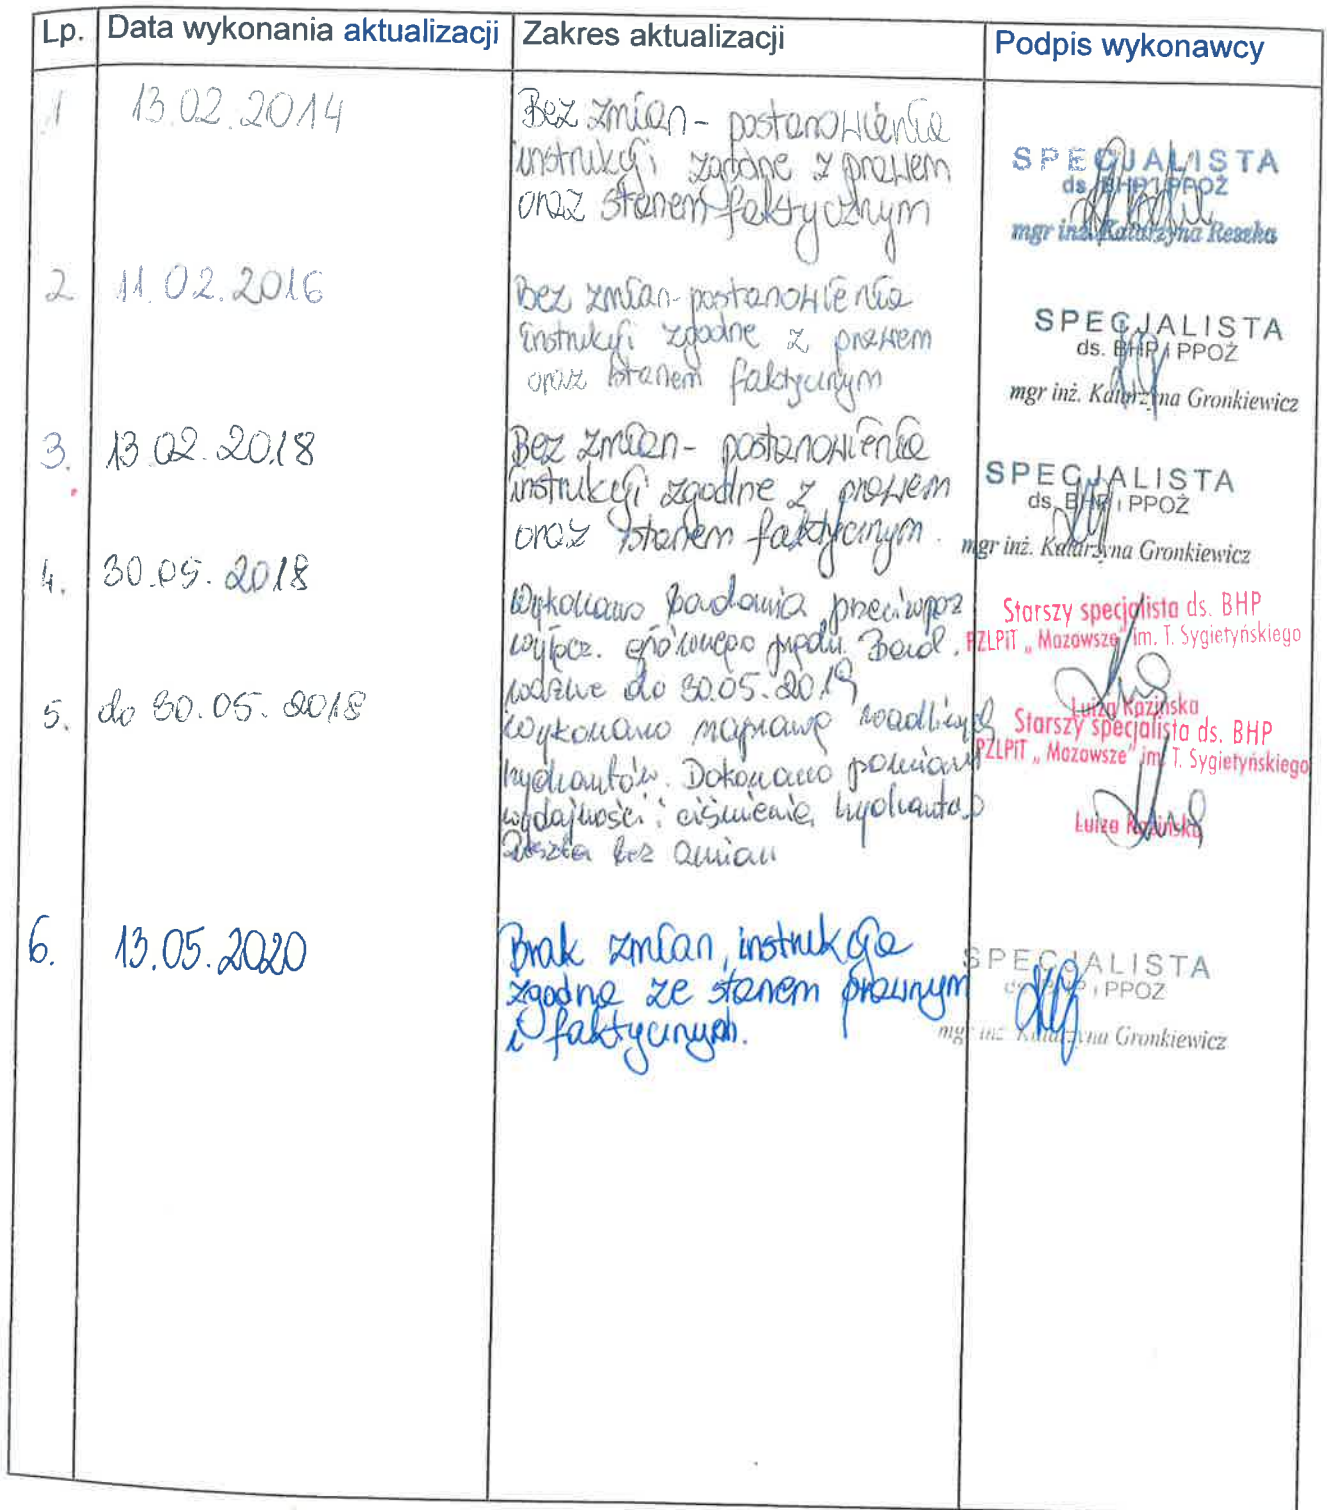 Lp. Data wykonania aktualizacji Zakres aktualizacji Podpis wykonawcy
1 13.02.2014
Bez zmian - postanowienia
instrukcji zgodne z prawem
oraz stanem faktycznym
SPECJALISTA
ds. BHP i PPOŻ
mgr inż. Katarzyna Reszka
2 11.02.2016
Bez zmian - postanowienia
instrukcji zgodne z prawem
oraz stanem faktycznym
SPECJALISTA
ds. BHP i PPOŻ
mgr inż. Katarzyna Gronkiewicz
3. 13.02.2018
Bez zmian - postanowienia
instrukcji zgodne z prawem
oraz stanem faktycznym.
SPECJALISTA
ds. BHP i PPOŻ
mgr inż. Katarzyna Gronkiewicz
4. 30.05.2018
Wykonano badania przeciwpoż
wyłącz. głównego prądu. Bad.
ważne do 30.05.2019
Starszy specjalista ds. BHP
PZLPiT „Mazowsze" im. T. Sygietyńskiego
Luiza Kozińska
5. do 30.05.2018
Wykonano naprawę wadliwych
hydrantów. Dokonano pomiaru
wydajności i ciśnienia hydrantów
Reszta bez zmian
Starszy specjalista ds. BHP
PZLPiT „Mazowsze" im. T. Sygietyńskiego
Luiza Kozińska
6. 13.05.2020
Brak zmian, instrukcja
zgodna ze stanem prawnym
i faktycznym.
SPECJALISTA
ds. BHP i PPOŻ
mgr inż. Katarzyna Gronkiewicz